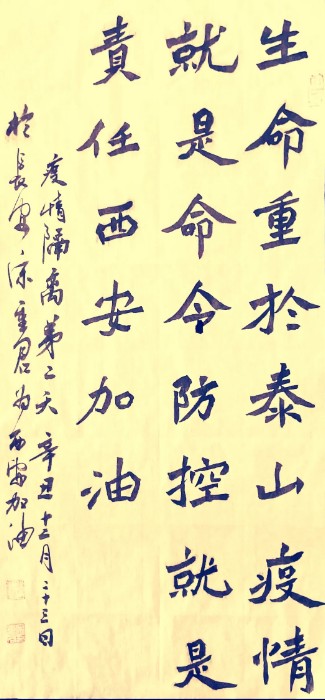 生命重於泰山疫情
就是命令防控就是
責任西安加油
疫情隔离第二天 辛丑十二月二十三日
於長安 重君為西安加油